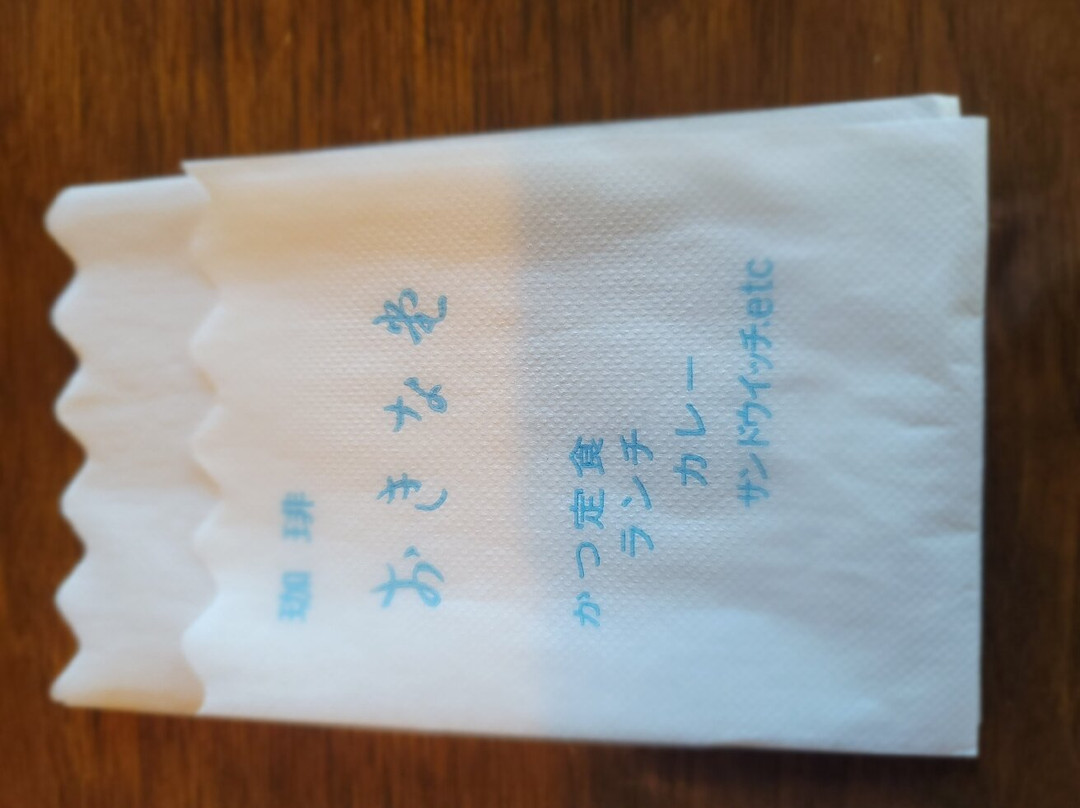 珈琲
おきな堂
かつ定食
ランチ
カレー
サンドウイッチ.etc